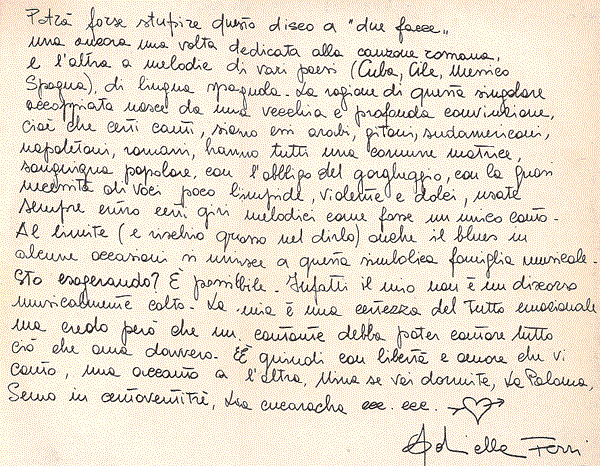 Potrà forse stupire questo disco a "due facce"
una ancora una volta dedicata alla canzone romana,
e l'altra a melodie di vari paesi (Cuba, Cile, Messico
Spagna), di lingua spagnola. La ragione di questa singolare
accoppiata nasce da una vecchia e profonda convinzione,
cioè che certi canti, siano essi arabi, gitani, sudamericani,
napoletani, romani, hanno tutti una comune matrice,
sanguigna popolare, con l'obbligo del gorgheggio, con la gran
necessità di voci poco limpide, violente e dolci, usate
sempre entro certi giri melodici come fosse un unico canto.
Al limite (e rischio grosso nel dirlo) anche il blues in
alcune occasioni si unisce a questa simbolica famiglia musicale.
Sto esagerando? È possibile. Infatti il mio non è un discorso
musicalmente colto. La mia è una certezza del tutto emozionale
ma credo però che un cantante debba poter cantare tutto
ciò che ama davvero. E quindi con libertà e amore che vi
canto, una accanto a l'altra, Nina se voi dormite, La Paloma,
Semo in centoventitrè, La cucaracha ecc. ecc.
Gabriella Ferri